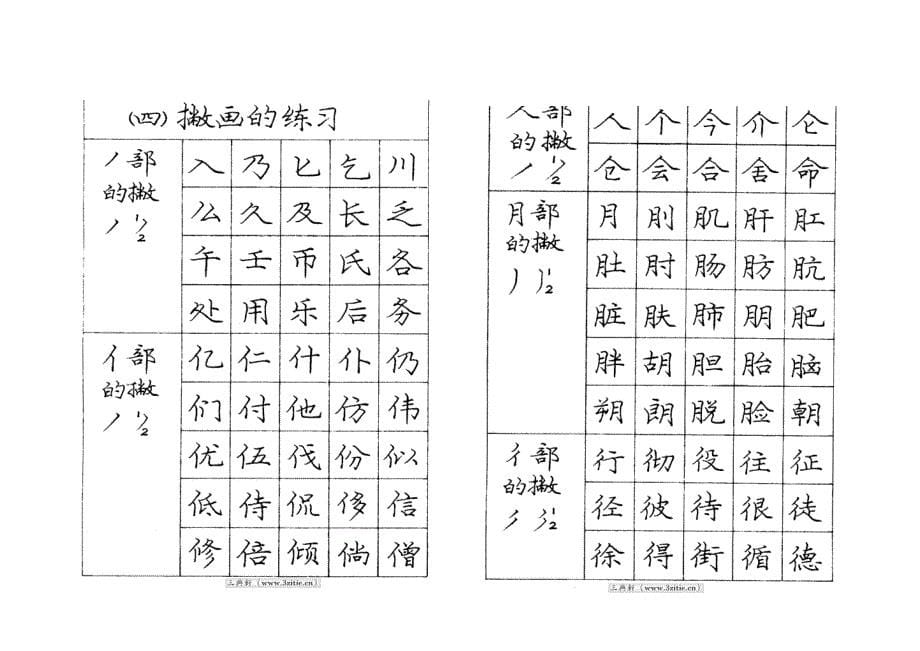 (四)撇画的练习
丿部
的撇
丿 1/2
入 乃 匕 乞 川
么 久 及 长 乏
午 壬 币 氏 各
处 用 乐 后 务
亻部
的撇
丿 1/2
亿 仁 什 仆 仍
们 付 他 仿 伟
优 伍 伐 份 似
低 侍 侃 侈 信
修 倍 倾 倘 僧
三典轩(www.3zitie.cn)
人部
的撇
丿 1/2
人 个 今 介 仑
仓 会 合 舍 命
月部
的撇
丿 1/2
月 刖 肌 肝 肛
肚 肘 肠 肪 肮
脏 肤 肺 朋 肥
胖 胡 胆 胎 脑
朔 朗 脱 脸 朝
彳部
的撇
1/2
行 彻 役 往 征
径 彼 待 很 徒
徐 得 街 循 德
三典轩(www.3zitie.cn)